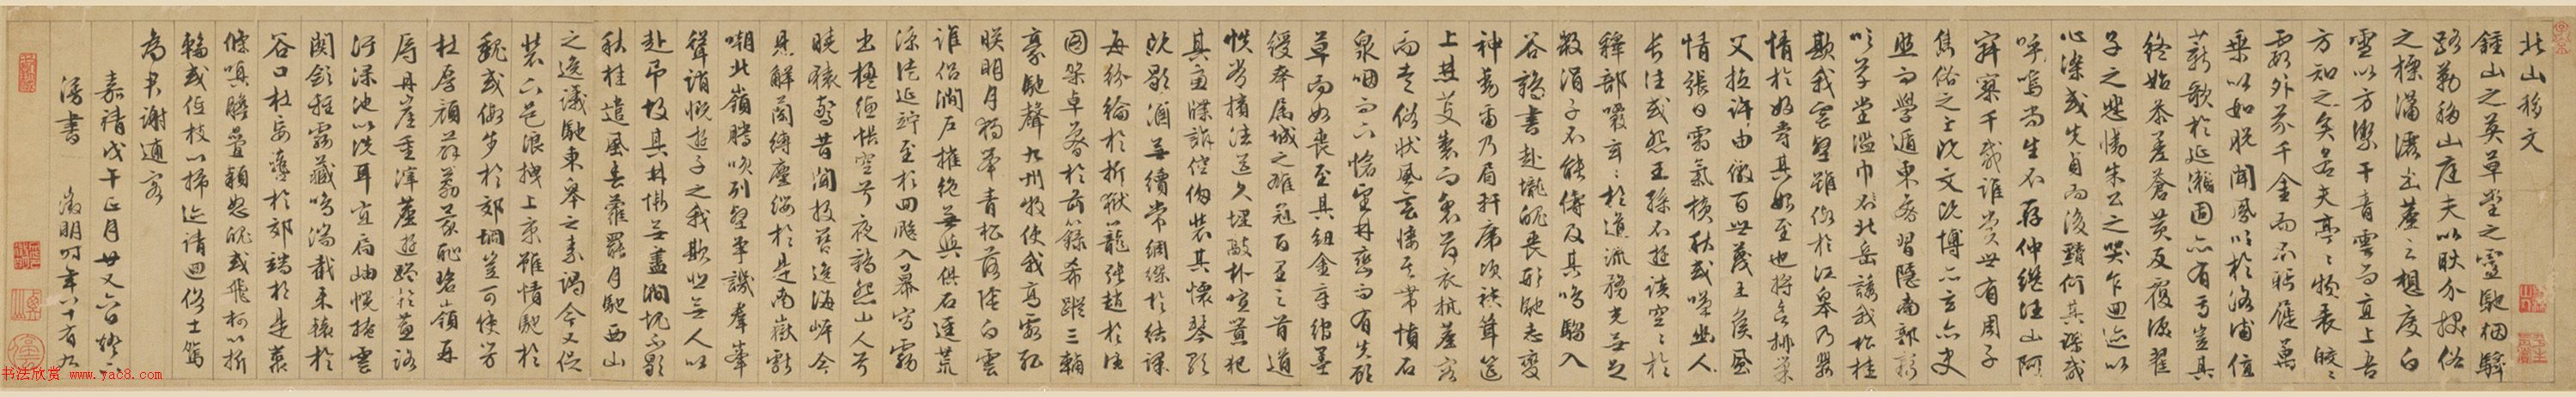 北山移文
鍾山之英草堂之靈馳烟驛
路勒移山庭夫以耿介拔俗
之標瀟灑出塵之想度白
雪以方潔干青雲而直上吾
方知之矣若夫亭亭物表皎皎
霞外芥千金而不眄屣萬
乘以如脫聞鳳吹於洛浦值
薪歌於延瀨固亦有焉豈其
終始參差蒼黃反覆淚翟
子之悲慟朱公之哭乍迴迹以
心染或先貞而後黷何其謬哉
嗚呼尚生不存仲氏往山阿
寂寥千載誰賞世有周子
雋俗之士既文既博亦玄亦史
然而學遁東魯習隱南郭竊
吹草堂濫巾北岳誘我松桂
欺我雲壑雖假於江皋乃纓
情於好爵其始至也將欲排巢
父拉許由傲百世蔑王侯風
情張日霜氣橫秋或嘆幽人
長往或怨王孫不遊談空空於
釋部覈玄玄於道流務光
涓子不能儔及其鳴騶入
谷鶴書赴隴形馳志變
神動爾乃眉軒席次袂聳筵
上焚芰製而裂荷衣抗塵容
而走俗狀風雲悽其帶憤石
泉咽而下愴望林巒而有失顧
草而如喪至其紐金章綰墨
綬屬城之雄冠百里之首道
帙長擯法筵久埋敲朴喧囂犯
其慮牒訴倥傯裝其懷琴歌
既斷酒無續常綢繆於結課
每紛綸於折獄籠張趙於往
圖架卓魯於前籙希蹤三輔
豪馳聲九州牧使我高霞孤
映明月獨舉青松落蔭白雲
誰侶澗戶摧絕無與俱石逕荒
涼徒延佇至於迴飈入幕寫霧
出楹蕙帳空兮夜鶴怨山人去兮
曉猿驚昔聞投簪逸海岸今
見解蘭縛塵纓於是南嶽獻
嘲北嶺騰笑列壑爭譏羣峯
聳誚慨遊子之我欺悲無人以
赴弔故其林慚無盡澗愧不歇
秋桂遣風春蘿罷月馳西山
之逸議馳東皋之素謁今又促
裝下邑浪拽上京雖情馳於
魏或假步於郊坰豈可使芳
杜厚顏薜荔蒙恥碧嶺再
辱丹崖重滓塵游躅於蕙路
汙淥池以洗耳宜扃岫幌掩雲
關斂輕霧藏鳴湍截來轅於
谷口杜妄轡於郊端於是叢
條嗔膽疊穎怒魄或飛柯以折
輪或低枝以掃迹請迴俗士駕
為君謝逋客
嘉靖戊午正月廿又六日
漫書 徵明時年八十有九
书法欣赏 www.yac8.com